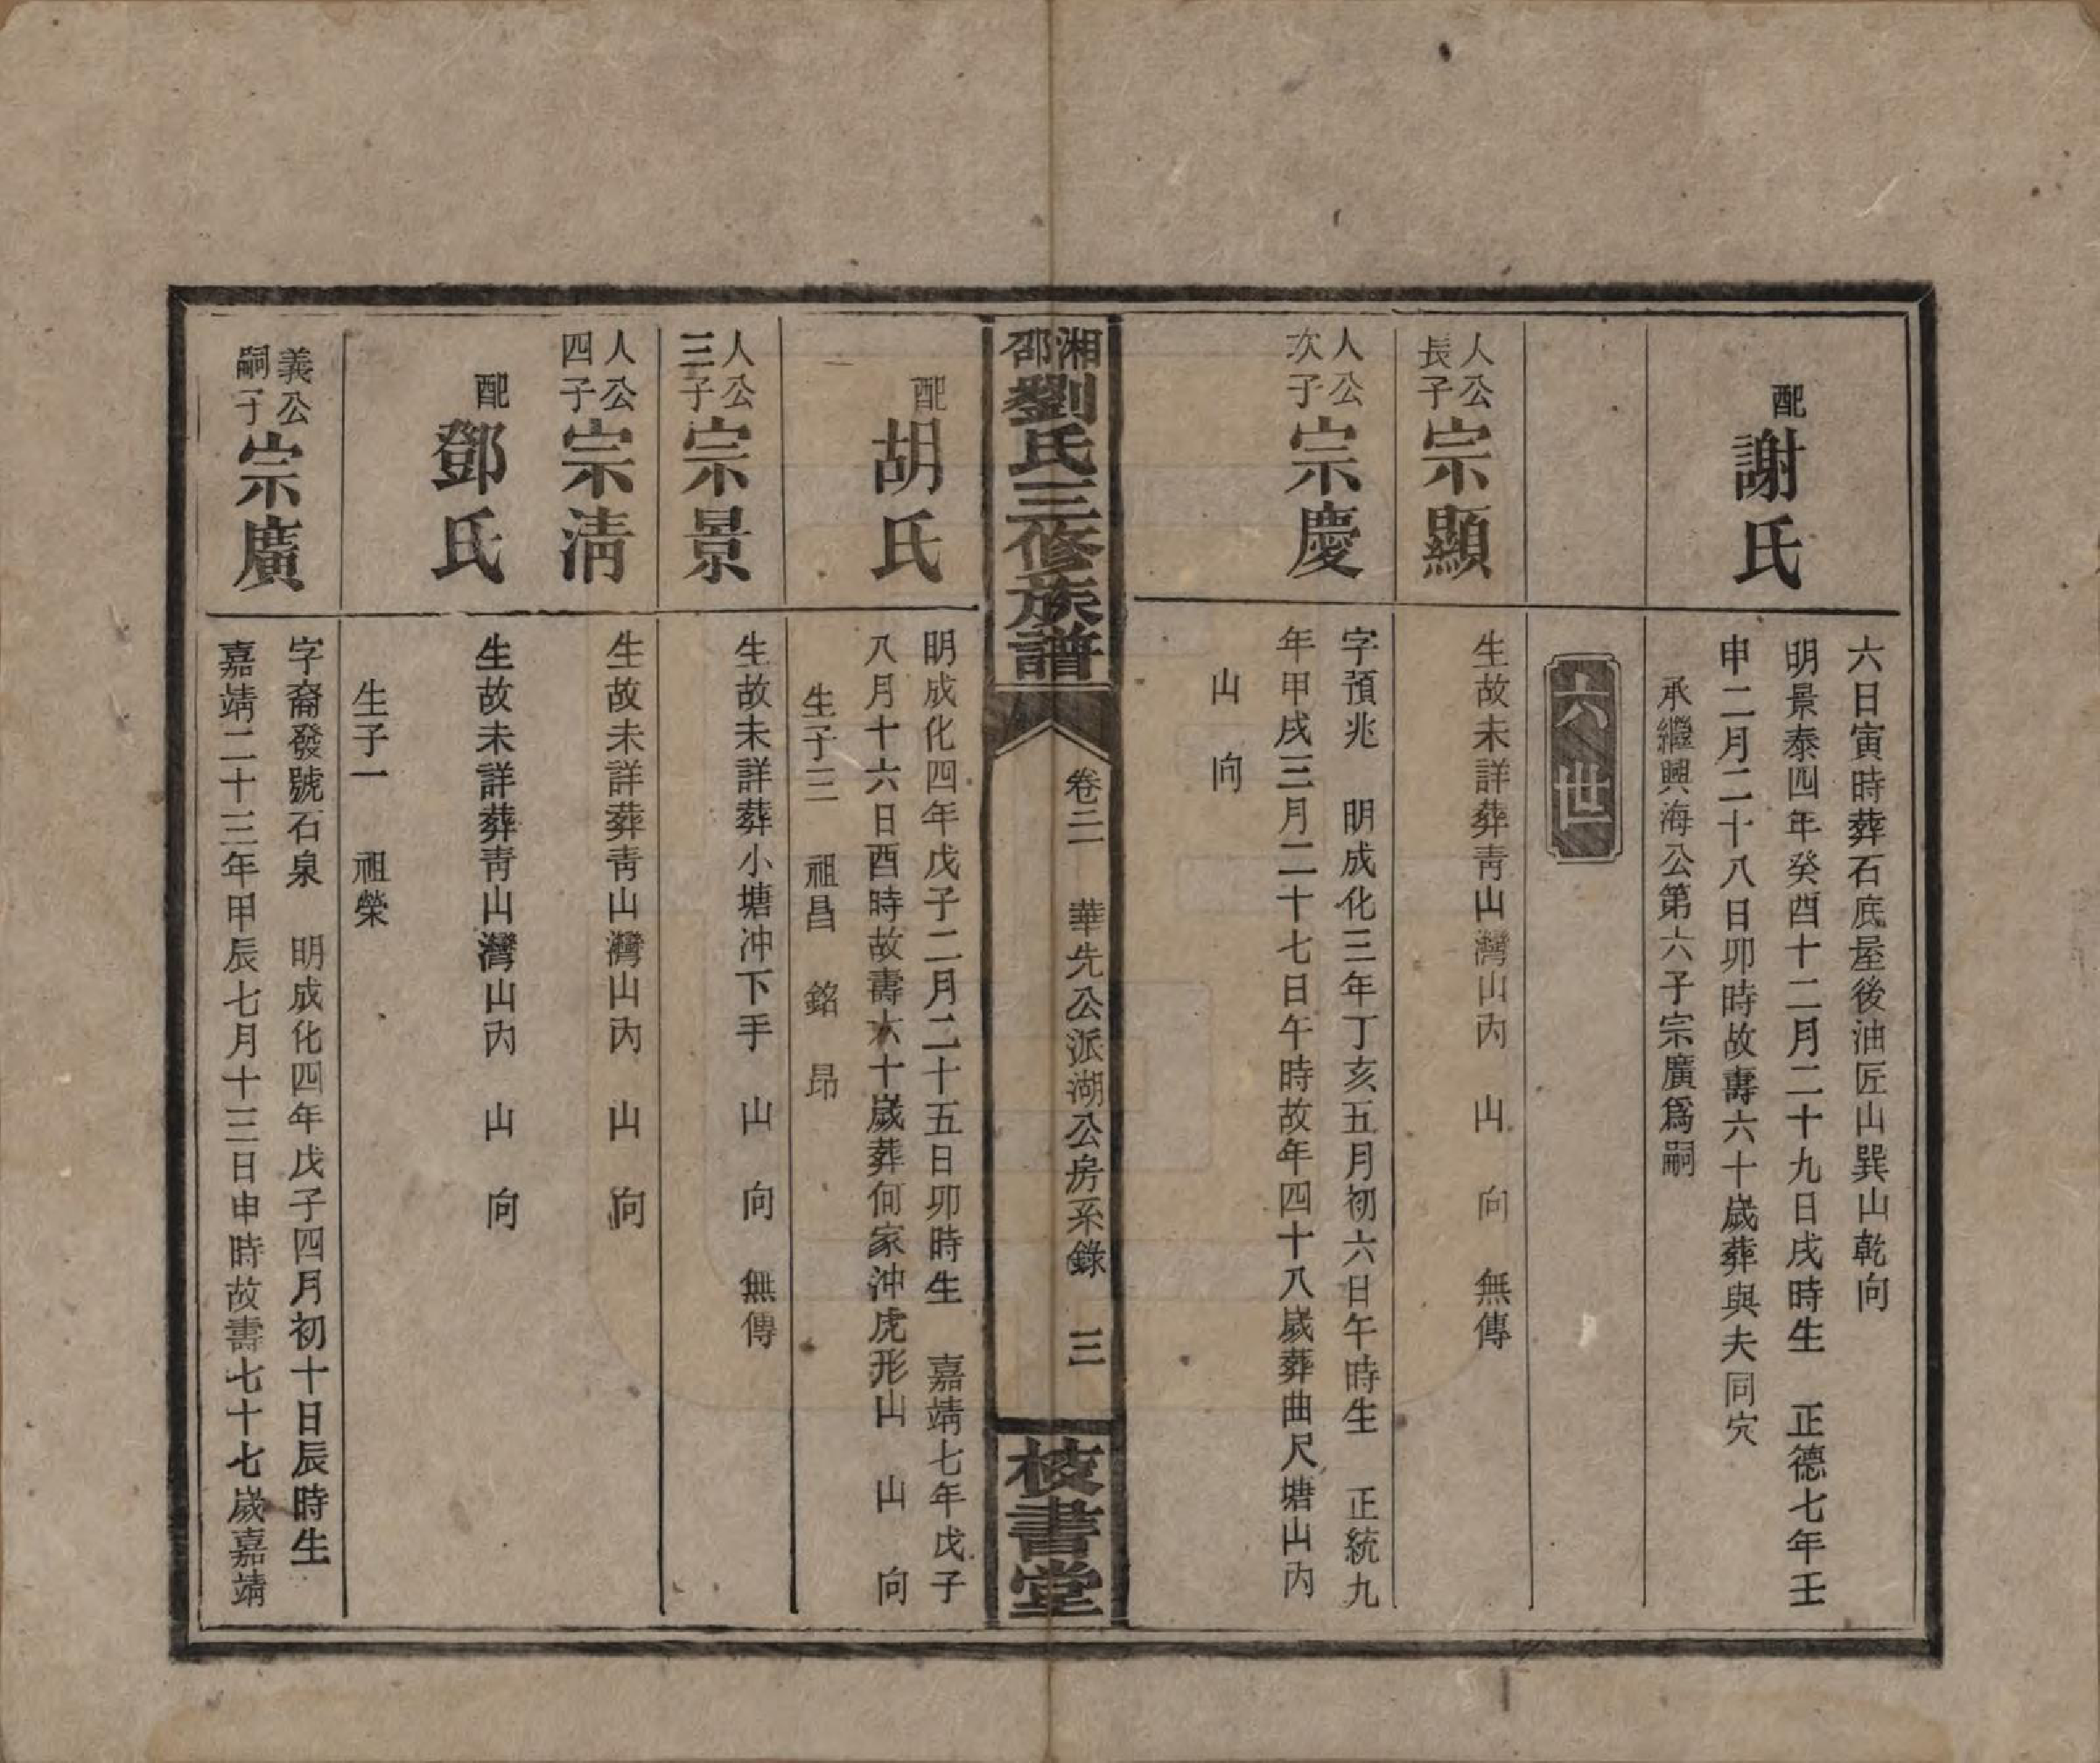 六日寅時葬石底屋後油匠山巽山乾向
配
謝氏
明景泰四年癸酉十二月二十九日戌時生 正德七年壬
申二月二十八日卯時故壽六十歲葬與夫同穴
承繼興海公第六子宗廣爲嗣
六世
人公
長子
宗顯
生故未詳葬靑山灣山內 山 向 無傳
人公
次子
宗慶
字預兆 明成化三年丁亥五月初六日午時生 正統九
年甲戌三月二十七日午時故年四十八歲葬曲尺塘山內
山 向
湘
邵
劉氏三修族譜
卷二 華先公派湖公房系錄 三
校書堂
配
胡氏
明成化四年戊子二月二十五日卯時生 嘉靖七年戊子
八月十六日酉時故壽六十歲葬何家沖虎形山 山 向
生子三 祖昌 銘 昂
人公
三子
宗景
生故未詳葬小塘沖下手 山 向 無傳
人公
四子
宗淸
生故未詳葬靑山灣山內 山 向
配
鄧氏
生故未詳葬靑山灣山內 山 向
生子一 祖榮
義公
嗣子
宗廣
字裔發號石泉 明成化四年戊子四月初十日辰時生
嘉靖二十三年甲辰七月十三日申時故壽七十七歲嘉靖